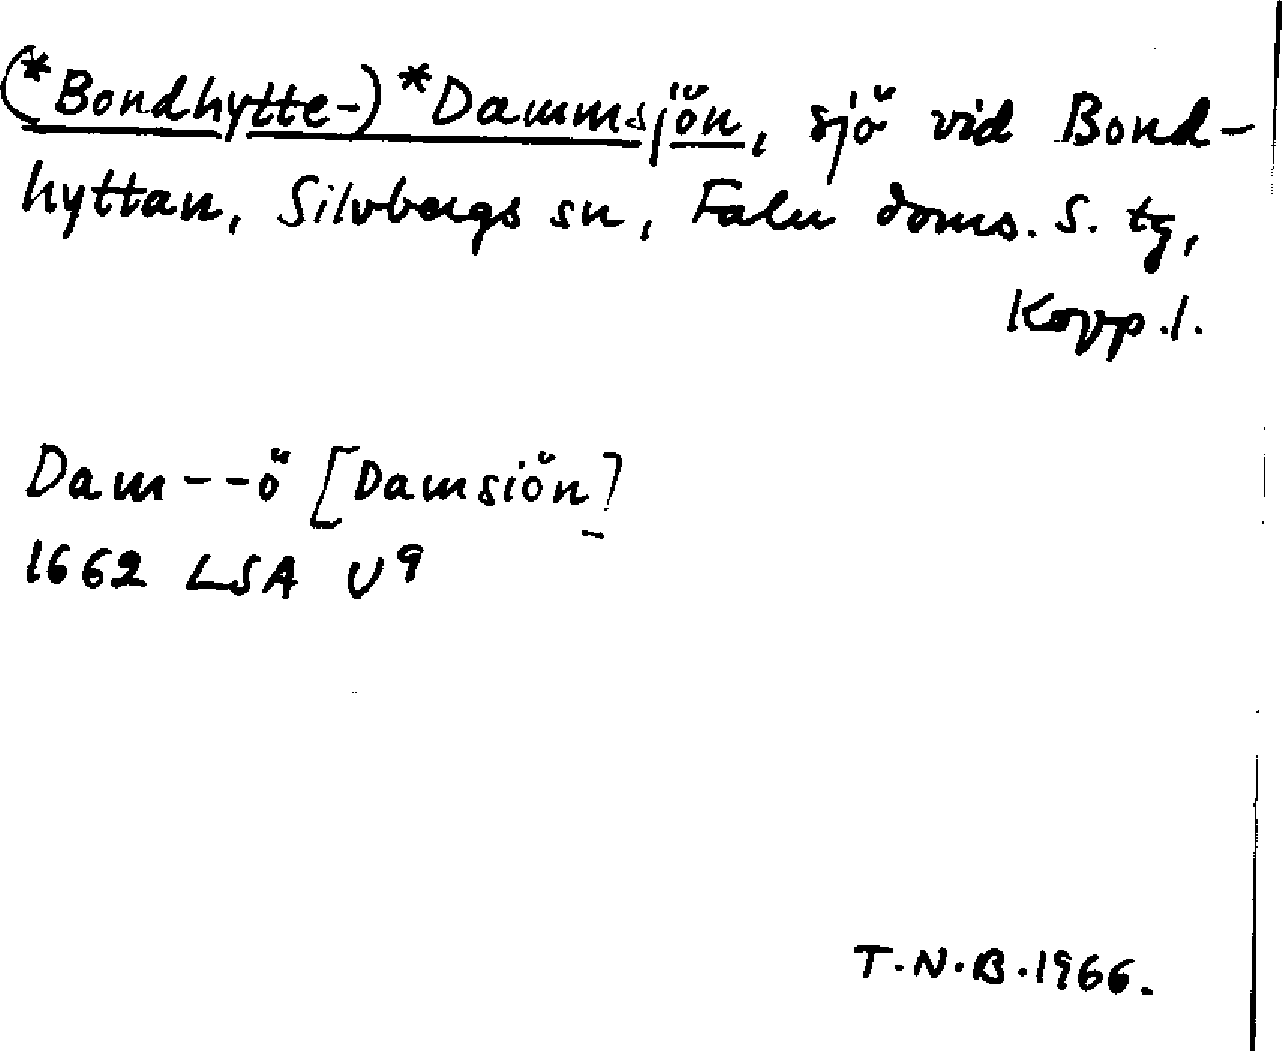 (*Bondhytte-)*Dammsjön, sjö vid Bond-
hyttan, Silvbergs sn, Falu doms. S. tg,
Kopp.l.
Dam--ö [Damsiön]
1662 LSA U9
T.N.B.1966.